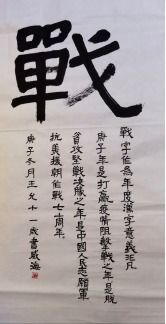 戰
戰字作為年度漢字意義非凡
庚子年是打贏疫情阻擊戰之年是脫
貧攻堅戰決勝之年是中國人民志願軍
抗美援朝作戰七十周年
庚子冬月王允十一歲書威海